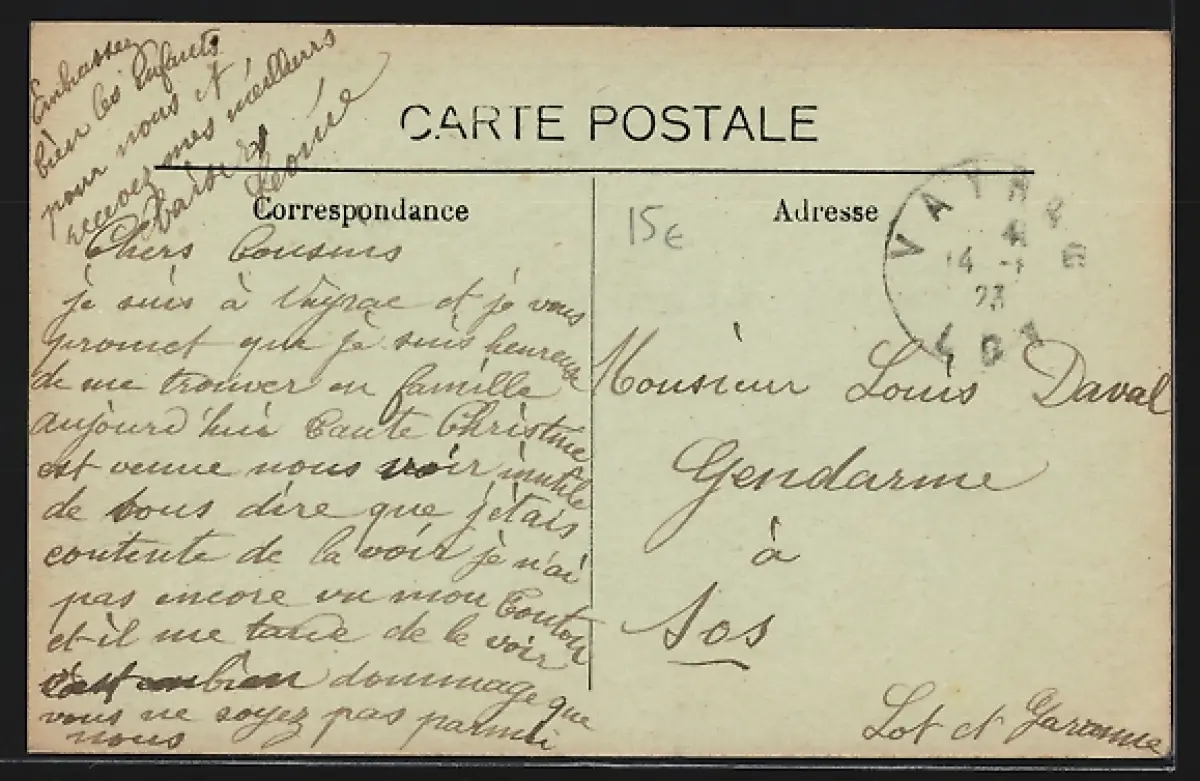 CARTE POSTALE
Correspondance
Adresse
15€
VAYRAC
14 -
23
LOT
Chers Cousins
je suis à Vayrac et je vous
promet que je suis heureuse
de me trouver en famille
aujourd'hui Tante Christine
est venue nous voir inutile
de vous dire que j'étais
contente de la voir je n'ai
pas encore vu mon Tonton
et il me tarde de le voir
c'est bien dommage que
vous ne soyez pas parmi
nous
Embrassez
bien les enfants
pour nous et
recevez mes meilleurs
baisers
Léonie
Monsieur Louis Daval
Gendarme
à
Sos
Lot et Garonne